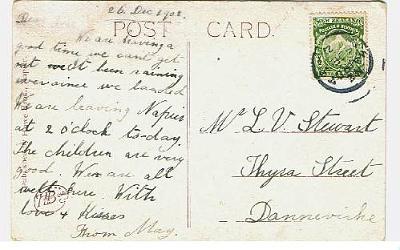 26 Dec 1908
POST CARD
Dear
We are having a
good time we cant get
out it been raining
ever since we landed
We are leaving Napier
at 2 o'clock to-day.
The children are very
good. We are all
well here. With
love & Kisses
From May.
NEW ZEALAND
Mr L. V. Stewart
Thyra Street
Dannevirke